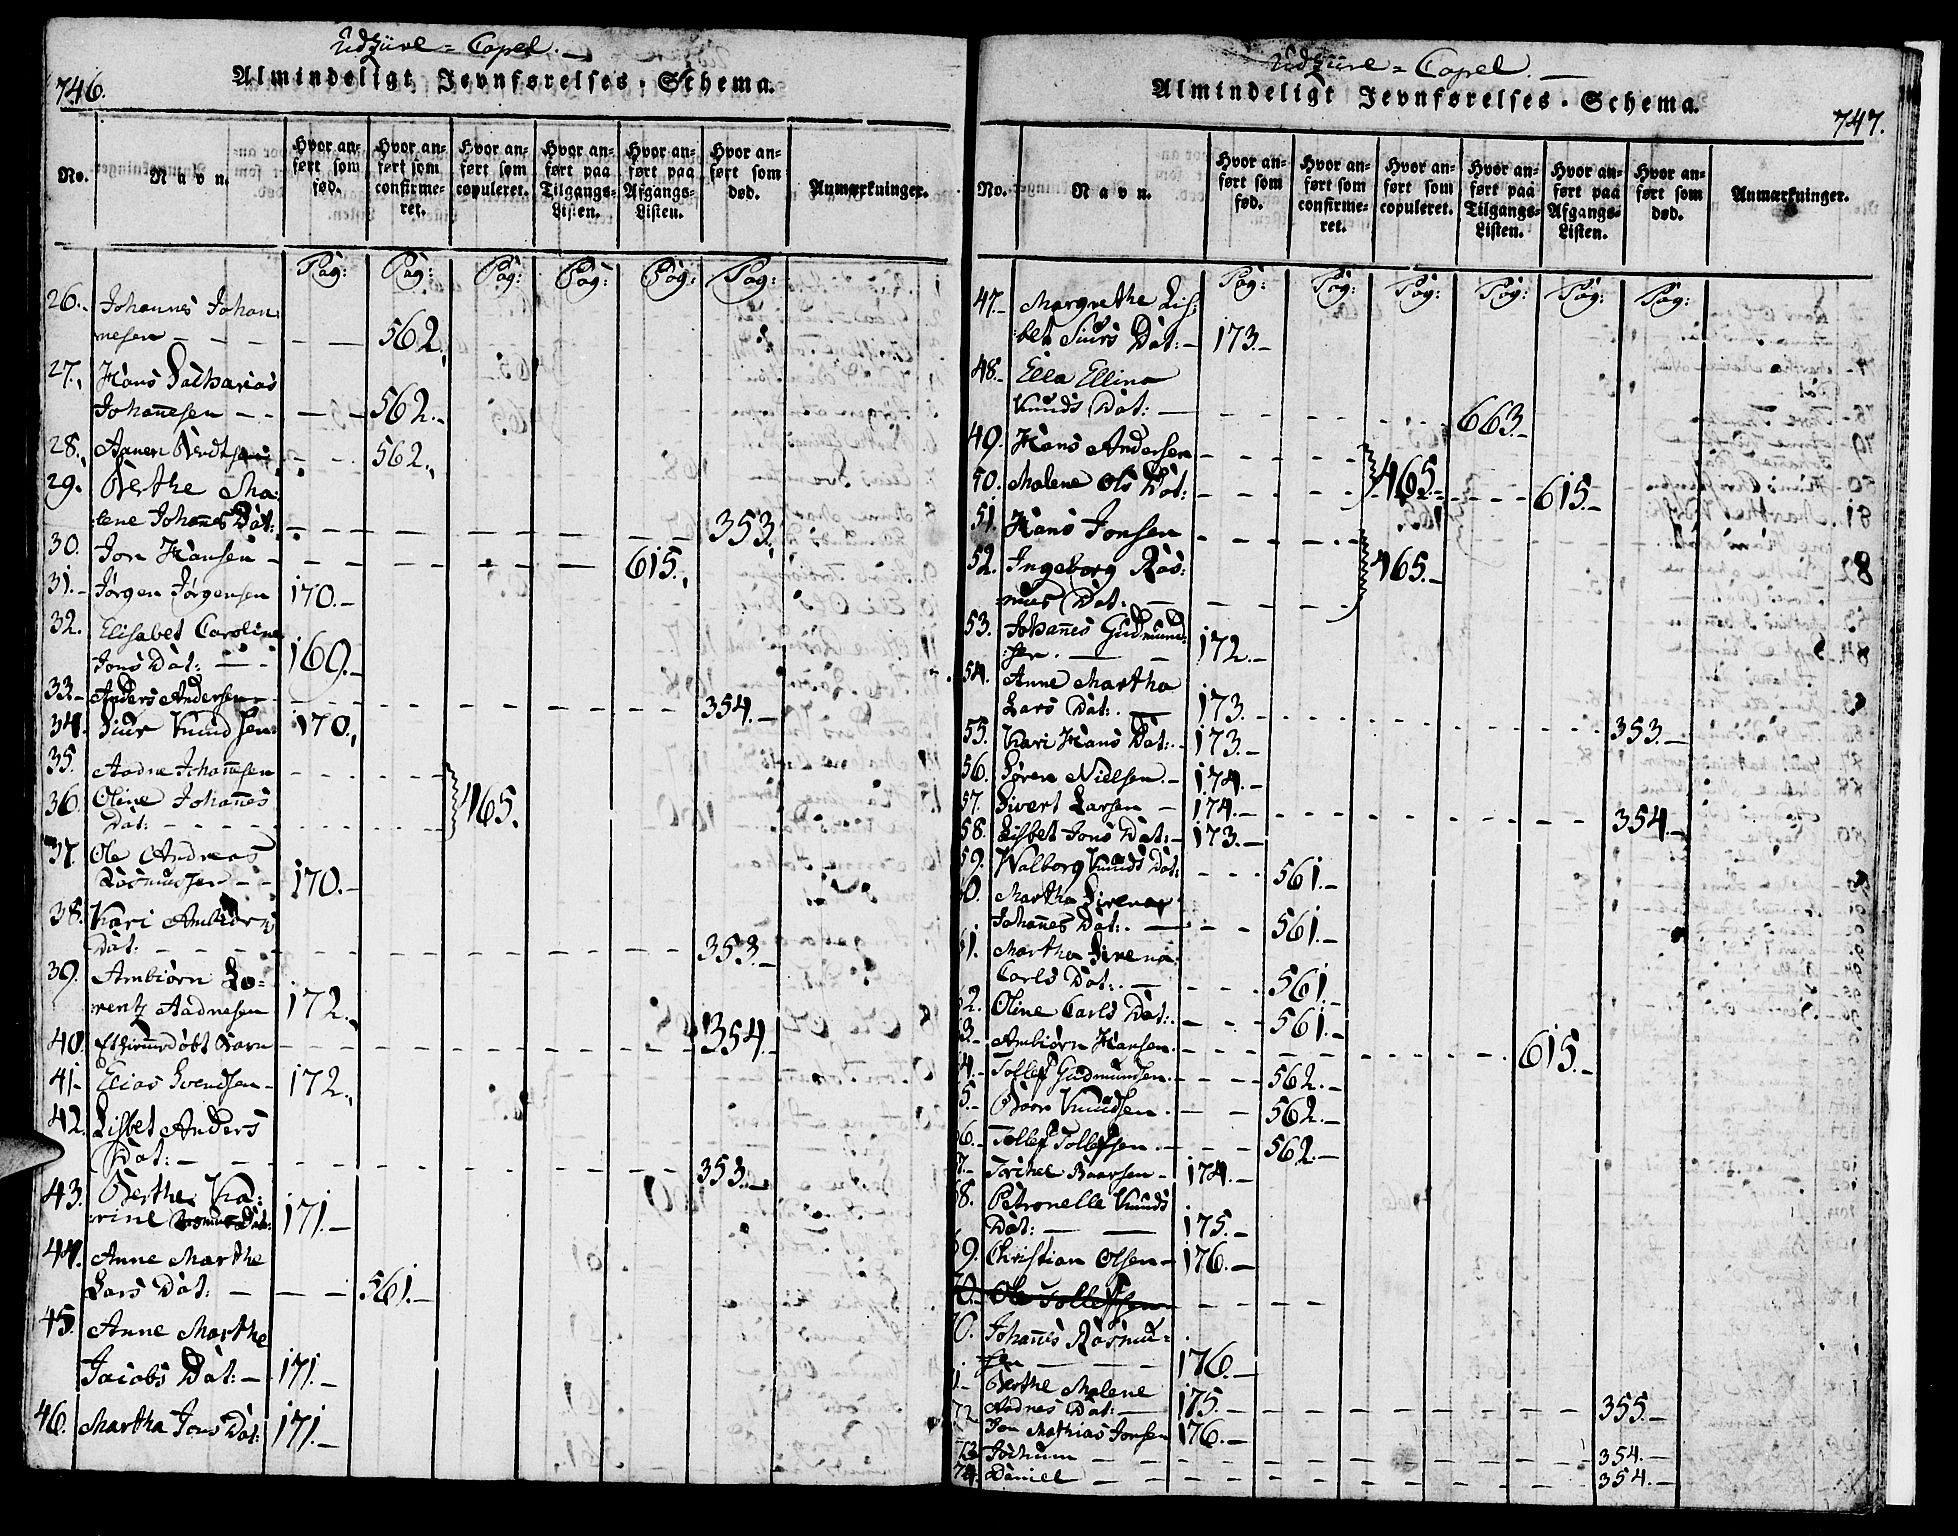 Udzüre = Capel. —
746. Almindeligt Jevnførelses - Schema.
No. Navn. Hvor anført som fød. Hvor anført som confirmeret. Hvor anført som copuleret. Hvor anført paa Tilgangs-Listen. Hvor anført paa Afgangs-Listen. Hvor anført som død. Anmærkninger.
Pag: Pag: Pag: Pag: Pag: Pag:
26. Johannes Johan
nesen — 562.
27. Hans Zacharias
Johannesen — 562.
28. Aanen Berdtsen 562.
29. Berthe Ma:
lene Johannes Dat: 353.
30. Jon Hansen 615.
31. Jørgen Jørgensen 170.
32. Elisabet Caroline
Jons Dat: 169.
33. Anders Andersen 354.
34. Siur Knudsen 170.
35. Aadne Johannesen
36. Oline Johannes 465.
Dat:
37. Ole Andreas
Rasmussen 170.
38. Kari Ambiørns
Dat: 353.
39. Ambiørn Lo=
rentz Aadnesen 172.
40. Et hiemmedøbt Barn 354.
41. Elias Svendsen 172.
42. Lisbet Anders
Dat: 353.
43. Berthe Ka:
rine Rasmus Dat: 171.
44. Anne Marthe
Lars Dat: 561.
45. Anne Marthe
Jacobs Dat: 171.
46. Martha Jons Dat: 171.
Udzüre = Capel. —
Almindeligt Jevnførelses - Schema. 747.
No. Navn. Hvor anført som fød. Hvor anført som confirmeret. Hvor anført som copuleret. Hvor anført paa Tilgangs-Listen. Hvor anført paa Afgangs-Listen. Hvor anført som død. Anmærkninger.
Pag: Pag: Pag: Pag: Pag: Pag:
47. Margrethe Lis:
bet Siurs Dat: 173.
48. Ella Ellina
Knuds Dat: 663.
49. Hans Andersen
50. Malene Ols Dat: 465. 615.
51. Hans Jonsen
52. Ingeborg Ras: 465.
mus Dat:
53. Johannes Gudmund
sen. 172.
54. Anne Martha
Lars Dat: 173. 353.
55. Kari Hans Dat: 173.
56. Søren Nielsen. 174.
57. Sivert Larsen 174. 354.
58. Lisbet Jons Dat: 173.
59. Walborg Knuds Dat: 561.
0. Martha Sirena
Johannes Dat: 561.
61. Martha Sirena
Carls Dat: 561.
2. Oline Carls Dat: 561.
3. Ambiørn Hansen 615.
4. Tollef Gudmundsen 562.
5. Baar Knudsen 562.
6. Tollef Tollefsen 562.
7. Torchel Baarsen 174.
8. Petronelle Knuds
Dat: 175.
9. Christian Olsen 176.
70. Ole Tollefsen
0. Johannes Rasmu=
sen 176.
1. Berthe Malene
Aadnes Dat: 175. 355.
72 Jon Mathias Jonsen 176.
73 Jochum 354.
74. Daniel 354.